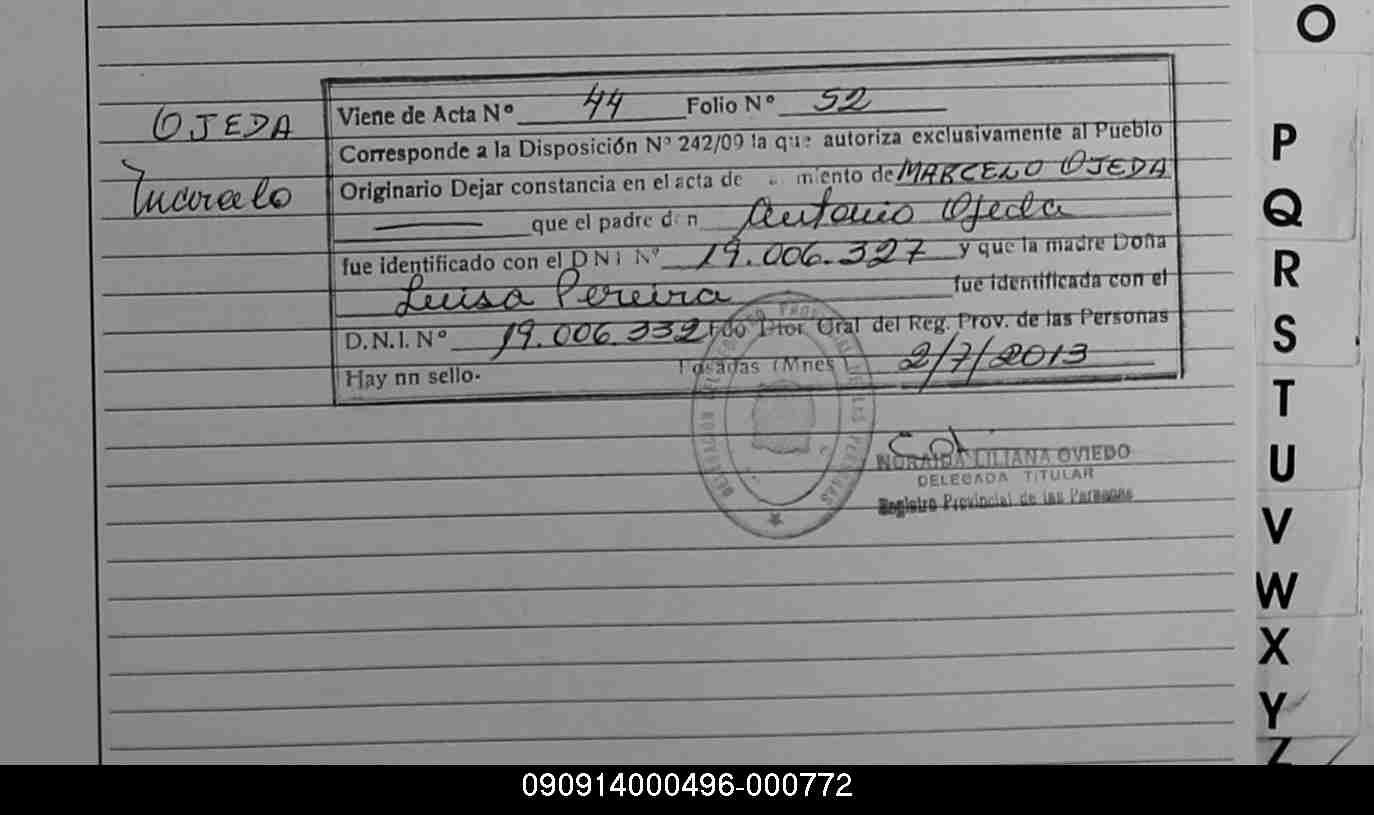 O
OJEDA
Marcelo
Viene de Acta Nº 44 Folio Nº 52
Corresponde a la Disposición Nº 242/09 la que autoriza exclusivamente al Pueblo
Originario Dejar constancia en el acta de miento de MARCELO OJEDA
que el padre don Antonio Ojeda
fue identificado con el DNI Nº 19.006.327 y que la madre Doña
Luisa Pereira fue identificada con el
D.N.I. Nº 19.006.332 Fdo Dtor Gral del Reg. Prov. de las Personas
Hay nn sello. Posadas (Mnes) 2/7/2013
NORAIDA LILIANA OVIEDO
DELEGADA TITULAR
Registro Provincial de las Personas
P
Q
R
S
T
U
V
W
X
Y
Z
090914000496-000772